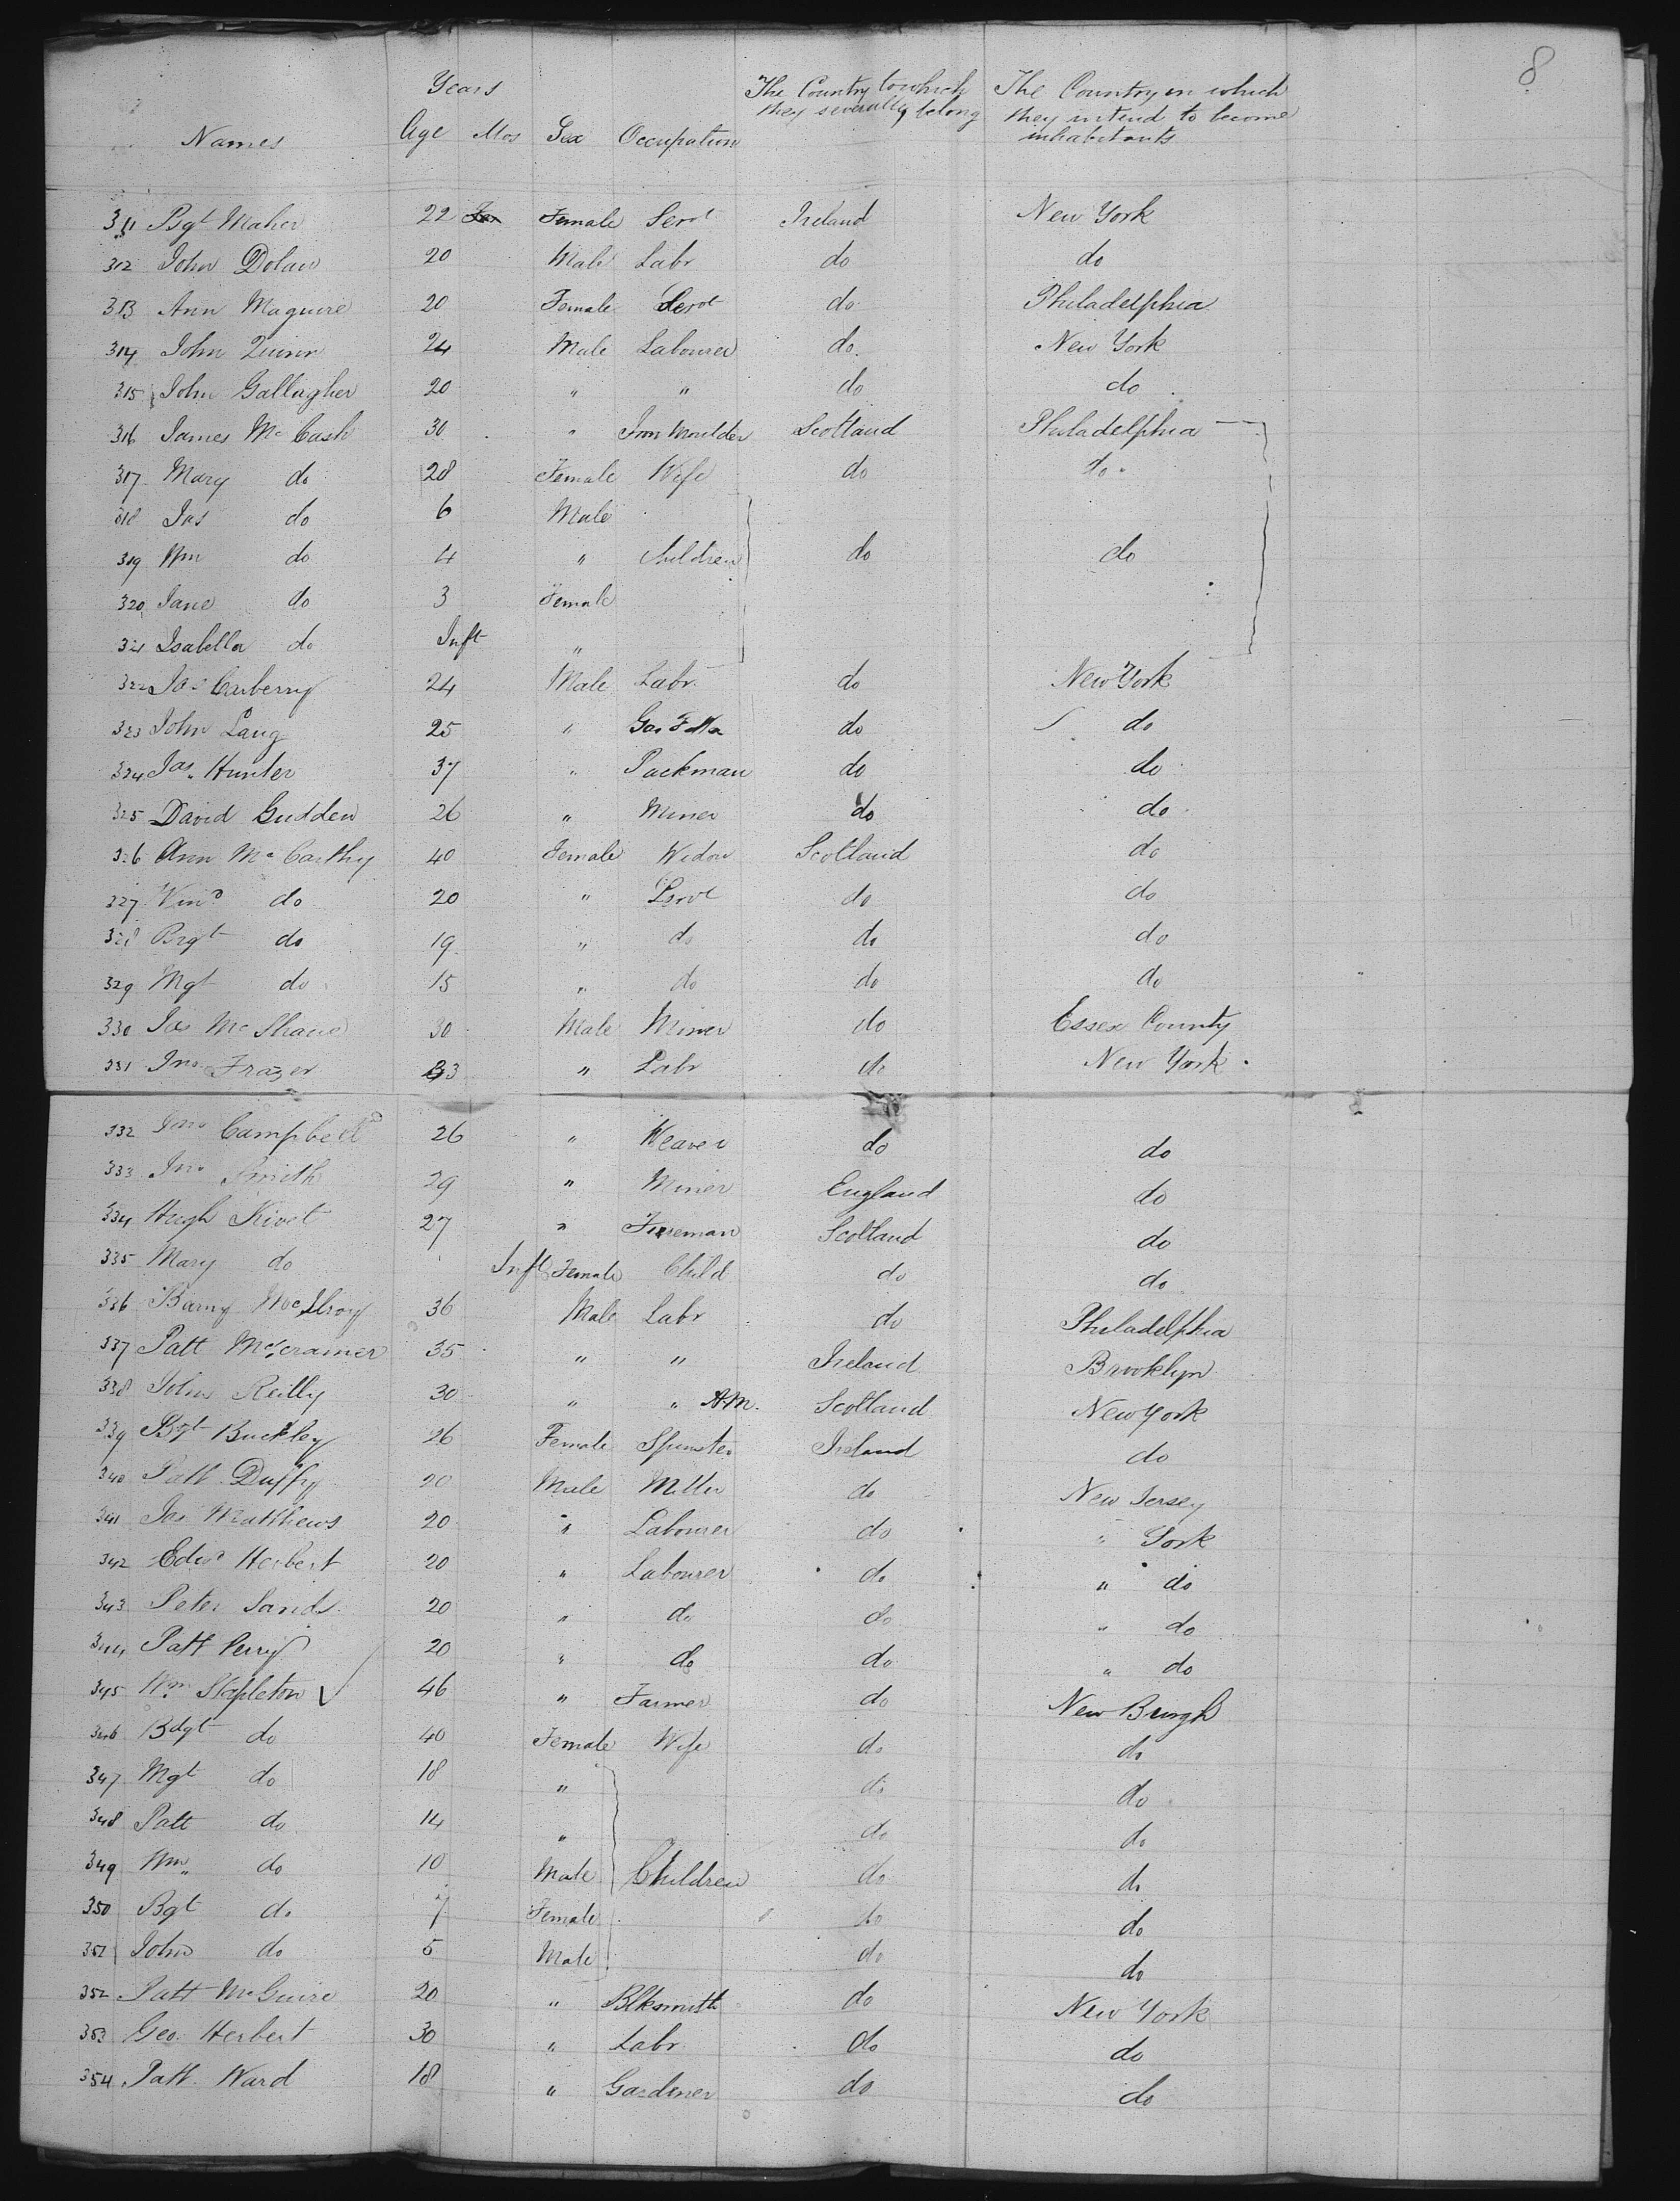 8
Names Years Age Mos Sex Occupation The Country to which they severally belong The Country in which they intend to become inhabitants
311 Bgt Maher 22 Female Servt Ireland New York
312 John Dolan 20 Male Labr do do
313 Ann Maguire 20 Female Servt do Philadelphia
314 John Quinn 24 Male Labourer do New York
315 John Gallagher 20 " " do do
316 James Mc Cash 30 " Iron Moulder Scotland Philadelphia
317 Mary do 28 Female Wife do do
318 Jas do 6 Male
319 Wm do 4 " Children do do
320 Jane do 3 Female
321 Isabella do Inft "
322 Jas Carberry 24 Male Labr do New York
323 John Lang 25 " Gas Fitter do do
324 Jas. Hunter 37 " Packman do do
325 David Gudden 26 " Miner do do
326 Ann Mc Carthy 40 Female Widow Scotland do
327 do 20 " Servt do do
328 Brgt do 19 " do do do
329 Mgt do 15 " do do do
330 Jas Mc Shane 30 Male Miner do Essex County
331 Jno Frazer 33 " Labr do New York
332 Jno Campbell 26 " Weaver do do
333 Jno Smith 29 " Miner England do
334 Hugh 27 " Fireman Scotland do
335 Mary do Inft Female Child do do
336 Barny McIlroy 36 Male Labr do Philadelphia
337 Patt 35 " " Ireland Brooklyn
338 John Reilly 30 " " A.M. Scotland New York
339 Bgt Buckley 26 Female Spinster Ireland do
340 Patt Duffy 20 Male Miller do New Jersey
341 Jas Matthews 20 " Labourer do " York
342 Edwd Herbert 20 " Labourer do " do
343 Peter Sands 20 " do do " do
344 Patt Perry 20 " do do " do
345 Wm Stapleton √ 46 " Farmer do New Burgh
346 Bdgt do 40 Female Wife do do
347 Mgt do 18 " do do
348 Patt do 14 " do do
349 Wm do 10 Male Children do do
350 Bgt do 7 Female do do
351 John do 5 Male do do
352 Patt McGuire 20 " Blksmith do New York
353 Geo Herbert 30 " Labr do do
354 Patt Ward 18 " Gardener do do